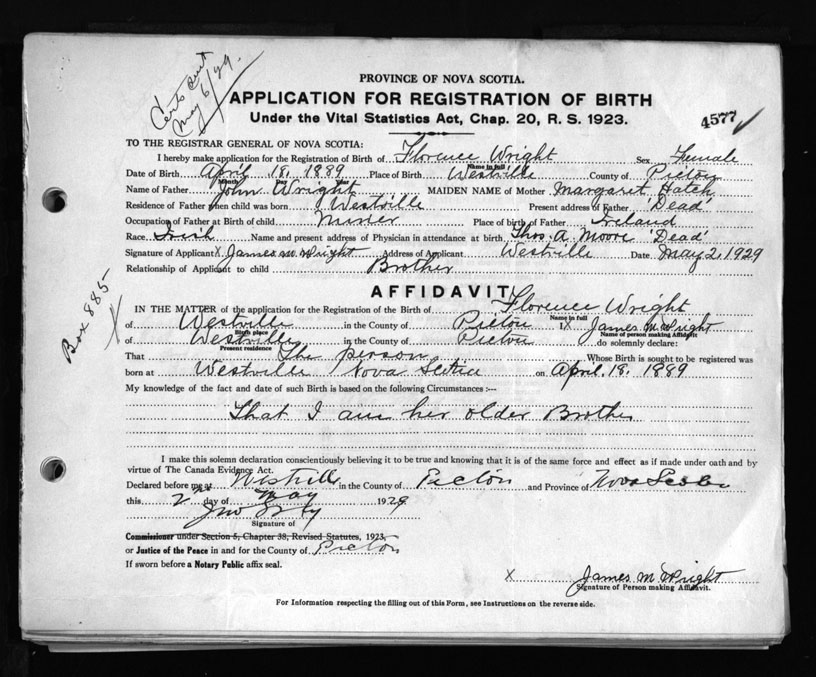 Certs sent
May 6/29.
PROVINCE OF NOVA SCOTIA.
APPLICATION FOR REGISTRATION OF BIRTH
Under the Vital Statistics Act, Chap. 20, R. S. 1923.
4577
TO THE REGISTRAR GENERAL OF NOVA SCOTIA:
I hereby make application for the Registration of Birth of Florence Wright Sex Female
Name in full
Date of Birth April 18, 1889 Place of Birth Westville County of Pictou
Month Day Year
Name of Father John Wright MAIDEN NAME of Mother Margaret Hatch
Residence of Father when child was born Westville Present address of Father 'Dead'
Occupation of Father at Birth of child Miner Place of birth of Father Ireland
Race Irish Name and present address of Physician in attendance at birth Thos. A. Moore 'Dead'
Signature of Applicant X James M Wright Address of Applicant Westville Date May 2, 1929
Relationship of Applicant to child Brother
Box 885
X
AFFIDAVIT
IN THE MATTER of the application for the Registration of the Birth of Florence Wright
Name in full
of Westville in the County of Pictou I X James M Wright
Birth place Name of person making Affidavit
of Westville in the County of Pictou do solemnly declare:
Present residence
That The person Whose Birth is sought to be registered was
born at Westville Nova Scotia on April. 18. 1889
My knowledge of the fact and date of such Birth is based on the following Circumstances :—
That I am her older Brother
I make this solemn declaration conscientiously believing it to be true and knowing that it is of the same force and effect as if made under oath and by
virtue of The Canada Evidence Act.
Declared before me at Westville in the County of Pictou and Province of Nova Scotia
this 2nd day of May 1929
Jno
Signature of
Commissioner under Section 5, Chapter 38, Revised Statutes, 1923,
or Justice of the Peace in and for the County of Pictou
If sworn before a Notary Public affix seal.
X James M Wright
Signature of Person making Affidavit.
For Information respecting the filling out of this Form, see Instructions on the reverse side.